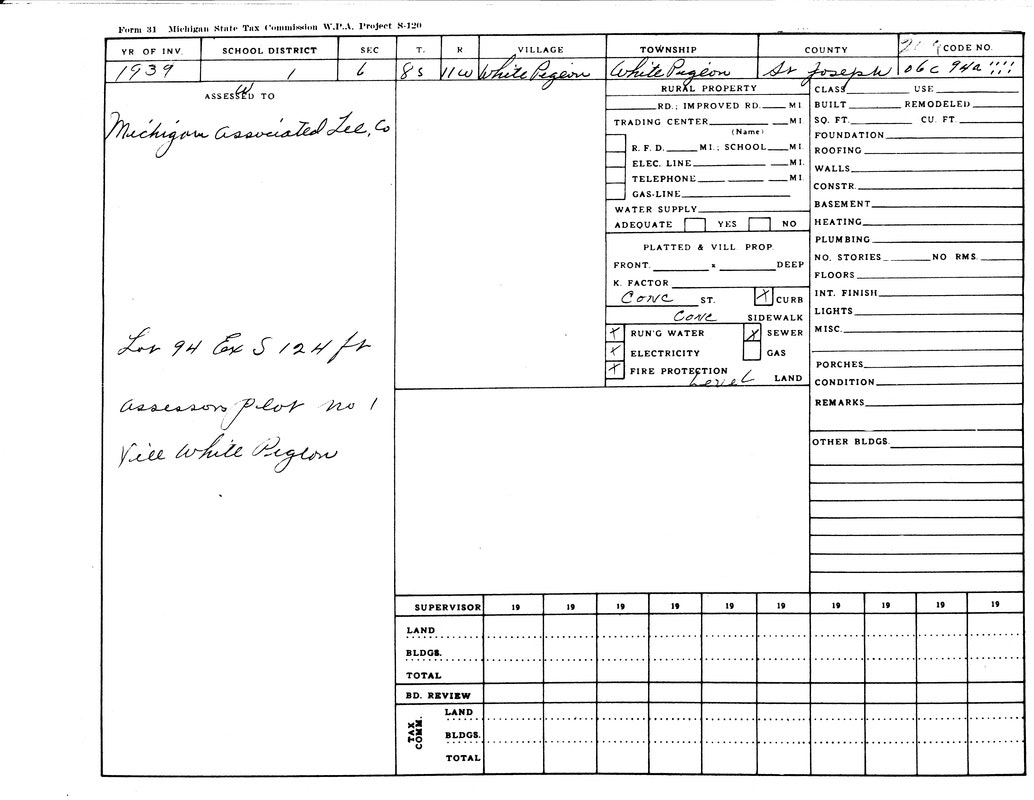 Form 31 Michigan State Tax Commission W.P.A. Project S-120
YR OF INV. SCHOOL DISTRICT SEC T. R VILLAGE TOWNSHIP COUNTY CODE NO.
1939 1 6 8S 11W White Pigeon White Pigeon St Joseph 06C 94a
ASSESSED TO
Michigan Associated Co
Lot 94 Ex S 124 ft
Assessors Plot no 1
Vill White Pigeon
RURAL PROPERTY
RD.; IMPROVED RD. MI
TRADING CENTER MI
(Name)
R. F. D. MI.; SCHOOL MI.
ELEC. LINE MI.
TELEPHONE MI.
GAS-LINE
WATER SUPPLY
ADEQUATE YES NO
PLATTED & VILL PROP.
FRONT. x DEEP
K. FACTOR
Conc ST. X CURB
Conc SIDEWALK
X RUN'G WATER X SEWER
X ELECTRICITY GAS
X FIRE PROTECTION
Level LAND
CLASS USE
BUILT REMODELED
SQ. FT. CU. FT.
FOUNDATION
ROOFING
WALLS
CONSTR.
BASEMENT
HEATING
PLUMBING
NO. STORIES NO RMS.
FLOORS
INT. FINISH
LIGHTS
MISC.
PORCHES
CONDITION
REMARKS
OTHER BLDGS.
SUPERVISOR 19 19 19 19 19 19 19 19 19 19
LAND
BLDGS.
TOTAL
BD. REVIEW
TAX COMM.
LAND
BLDGS.
TOTAL